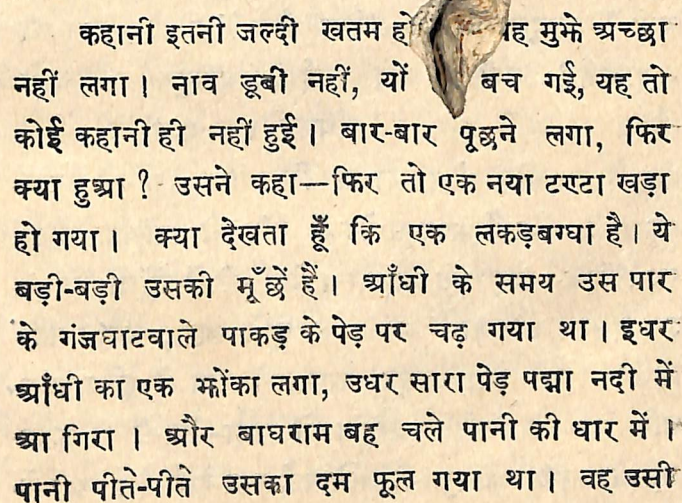 कहानी इतनी जल्दी खतम हो मुझे अच्छा
नहीं लगा। नाव डूबी नहीं, यों बच गई, यह तो
कोई कहानी ही नहीं हुई। बार-बार पूछने लगा, फिर
क्या हुआ? उसने कहा—फिर तो एक नया टण्टा खड़ा
हो गया। क्या देखता हूँ कि एक लकड़बग्घा है। ये
बड़ी-बड़ी उसकी मूँछें हैं। आँधी के समय उस पार
के गंजघाटवाले पाकड़ के पेड़ पर चढ़ गया था। इधर
आँधी का एक झोंका लगा, उधर सारा पेड़ पद्मा नदी में
आ गिरा। और बाघराम बह चले पानी की धार में।
पानी पीते-पीते उसका दम फूल गया था। वह उसी